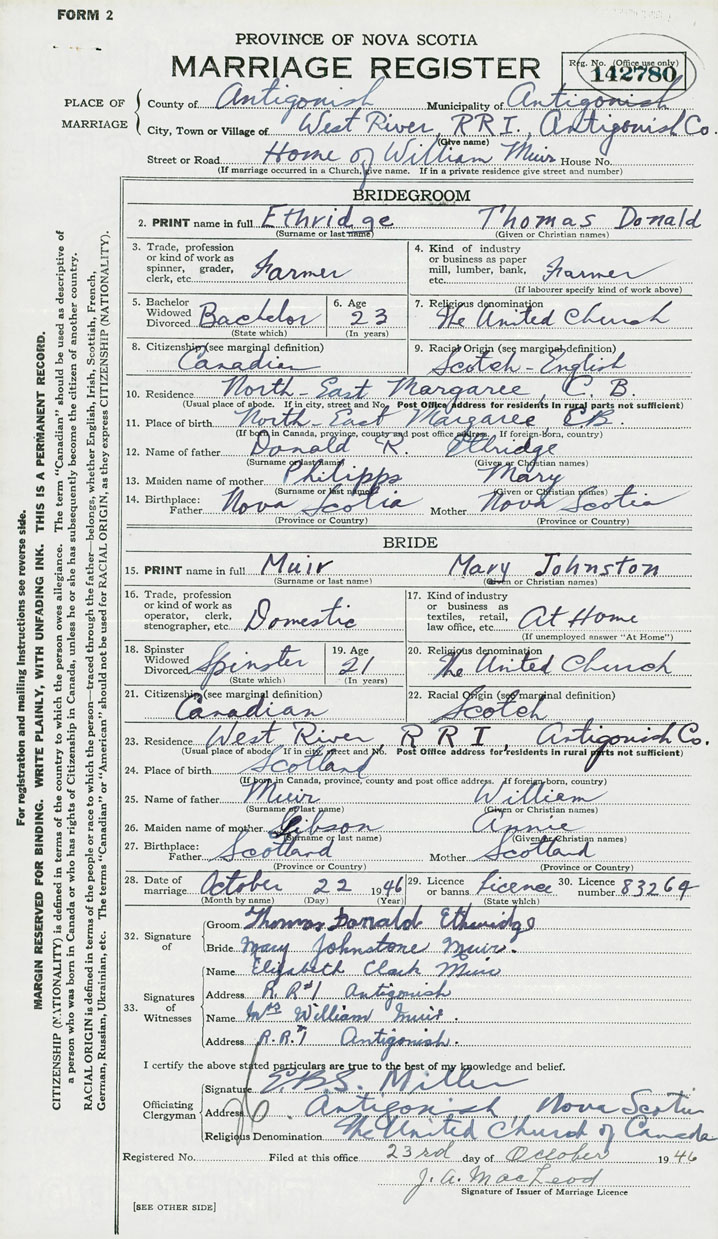 FORM 2
PROVINCE OF NOVA SCOTIA
MARRIAGE REGISTER
Reg. No. (Office use only)
142780
PLACE OF MARRIAGE
County of Antigonish Municipality of Antigonish
City, Town or Village of West River, R R I., Antigonish Co.
(Give name)
Street or Road Home of William Muir House No.
(If marriage occurred in a Church, give name. If in a private residence give street and number)
BRIDEGROOM
2. PRINT name in full Ethridge Thomas Donald
(Surname or last name) (Given or Christian names)
3. Trade, profession or kind of work as spinner, grader, clerk, etc. Farmer
4. Kind of industry or business as paper mill, lumber, bank, etc. Farmer
(If labourer specify kind of work above)
5. Bachelor Widowed Divorced Bachelor
(State which)
6. Age 23
(In years)
7. Religious denomination
The United Church
8. Citizenship (see marginal definition)
Canadian
9. Racial Origin (see marginal definition)
Scotch-English
10. Residence North-East Margaree, C. B.
(Usual place of abode. If in city, street and No. Post Office address for residents in rural parts not sufficient)
11. Place of birth North-East Margaree, C.B.
(If born in Canada, province, county and post office address. If foreign-born, country)
12. Name of father Donald R. Ethridge
(Surname or last name) (Given or Christian names)
13. Maiden name of mother Philipps Mary
(Surname or last name) (Given or Christian names)
14. Birthplace: Father Nova Scotia Mother Nova Scotia
(Province or Country) (Province or Country)
BRIDE
15. PRINT name in full Muir Mary Johnston
(Surname or last name) (Given or Christian names)
16. Trade, profession or kind of work as operator, clerk, stenographer, etc. Domestic
17. Kind of industry or business as textiles, retail, law office, etc. At Home
(If unemployed answer "At Home")
18. Spinster Widowed Divorced Spinster
(State which)
19. Age 21
(In years)
20. Religious denomination
The United Church
21. Citizenship (see marginal definition)
Canadian
22. Racial Origin (see marginal definition)
Scotch
23. Residence West River, R R I, Antigonish Co.
(Usual place of abode. If in city, street and No. Post Office address for residents in rural parts not sufficient)
24. Place of birth Scotland
(If born in Canada, province, county and post office address. If foreign-born, country)
25. Name of father Muir William
(Surname or last name) (Given or Christian names)
26. Maiden name of mother Gibson Annie
(Surname or last name) (Given or Christian names)
27. Birthplace: Father Scotland Mother Scotland
(Province or Country) (Province or Country)
28. Date of marriage October 22 1946
(Month by name) (Day) (Year)
29. Licence or banns Licence
(State which)
30. Licence number 83264
32. Signature of
Groom Thomas Donald Ethridge
Bride Mary Johnstone Muir.
33. Signatures of Witnesses
Name Elizabeth Clark Muir
Address R. R #1 Antigonish
Name Mrs William Muir.
Address R.R.#1 Antigonish.
I certify the above stated particulars are true to the best of my knowledge and belief.
Officiating Clergyman
Signature E.B.S. Miller
Address Antigonish Nova Scotia
Religious Denomination The United Church of Canada
Registered No. Filed at this office 23rd day of October 1946
J. A. MacLeod
Signature of Issuer of Marriage Licence
[SEE OTHER SIDE]
For registration and mailing instructions see reverse side.
MARGIN RESERVED FOR BINDING. WRITE PLAINLY, WITH UNFADING INK. THIS IS A PERMANENT RECORD.
CITIZENSHIP (NATIONALITY) is defined in terms of the country to which the person owes allegiance. The term "Canadian" should be used as descriptive of
a person who was born in Canada or who has rights of Citizenship in Canada, unless he or she has subsequently become the citizen of another country.
RACIAL ORIGIN is defined in terms of the people or race to which the person—traced through the father—belongs, whether English, Irish, Scottish, French,
German, Russian, Ukrainian, etc. The terms "Canadian" or "American" should not be used for RACIAL ORIGIN, as they express CITIZENSHIP (NATIONALITY).